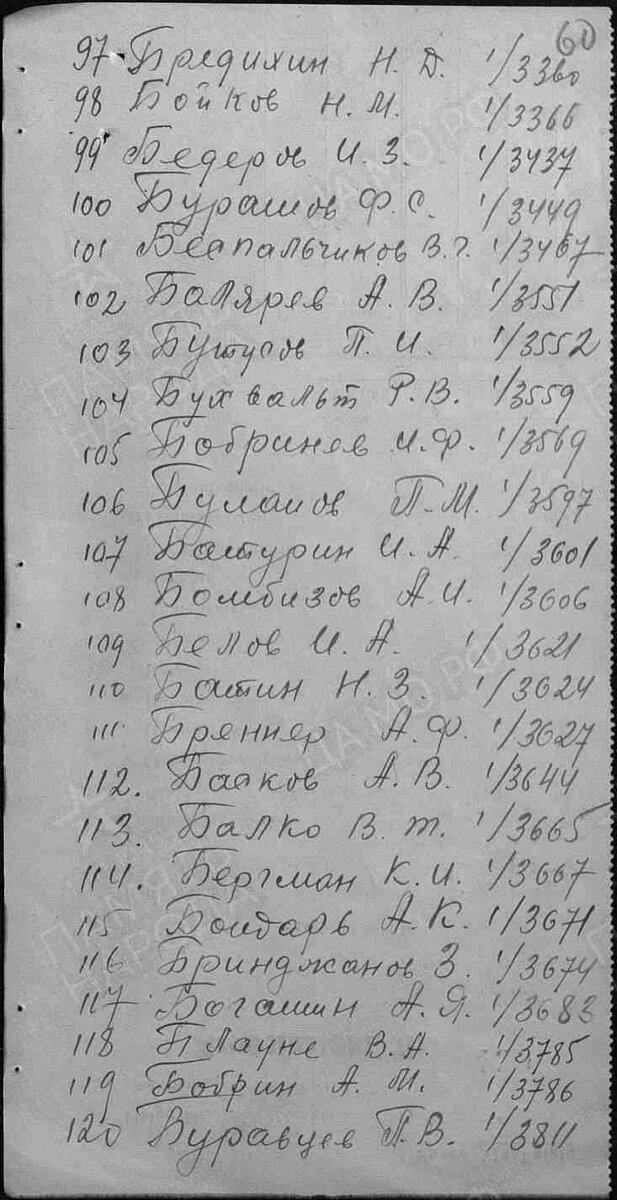 60
97 Бредихин Н. Д. 1/3360
98 Бойков Н. М. 1/3366
99 Бедеров И. З. 1/3437
100 Бурашов Ф. С. 1/3449
101 Беспальчиков В. Г. 1/3467
102 Балярев А. В. 1/3551
103 Бутусов П. И. 1/3552
104 Бухвальт Р. В. 1/3559
105 Бобринев И. Ф. 1/3569
106 Буланов П. М. 1/3597
107 Батурин И. А. 1/3601
108 Бомбизов А. И. 1/3606
109 Белов И. А. 1/3621
110 Батин Н. З. 1/3624
111 Бреннер А. Ф. 1/3627
112. Басков А. В. 1/3644
113. Балко В. Т. 1/3665
114. Бергман К. И. 1/3667
115 Бондарь А. К. 1/3671
116 Бринджанов З. 1/3674
117 Богашин А. Я. 1/3683
118 Плауне В. А. 1/3785
119 Бобрин А. М. 1/3786
120 Буравцев П. В. 1/3811